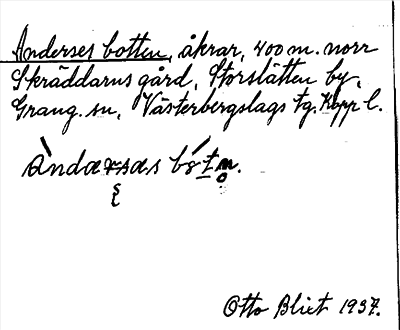 Anderses botten, åkrar, 400 m. norr
Skräddarns gård, Storslätten by,
Grang. sn, Västerbergslags tg. Kopp l.
Otto Blixt 1937.